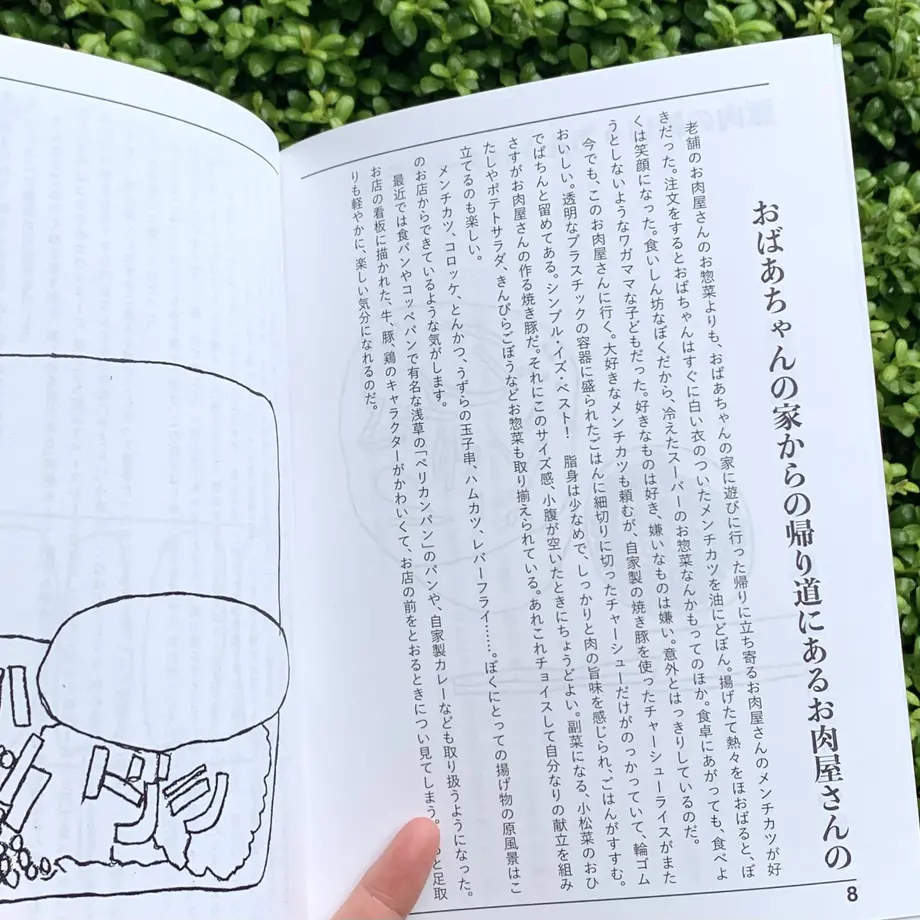 おばあちゃんの家からの帰り道にあるお肉屋さんの
老舗のお肉屋さんのお惣菜よりも、おばあちゃんの家に遊びに行った帰りに立ち寄るお肉屋さんのメンチカツが好
きだった。注文をするとおばちゃんはすぐに白い衣のついたメンチカツを油にどぼん。揚げたて熱々をほおばると、ぼ
くは笑顔になった。食いしん坊なぼくだから、冷えたスーパーのお惣菜なんかもってのほか。食卓にあがっても、食べよ
うとしないようなワガママな子どもだった。好きなものは好き、嫌いなものは嫌い。意外とはっきりしているのだ。
今でも、このお肉屋さんに行く。大好きなメンチカツも頼むが、自家製の焼き豚を使ったチャーシューライスがまた
おいしい。透明なプラスチックの容器に盛られたごはんに細切りに切ったチャーシューだけがのっかっていて、輪ゴム
でぱちんと留めてある。シンプル・イズ・ベスト！　脂身は少なめで、しっかりと肉の旨味を感じられ、ごはんがすすむ。
さすがお肉屋さんの作る焼き豚だ。それにこのサイズ感、小腹が空いたときにちょうどよい。副菜になる、小松菜のおひ
たしやポテトサラダ、きんぴらごぼうなどお惣菜も取り揃えられている。あれこれチョイスして自分なりの献立を組み
立てるのも楽しい。
メンチカツ、コロッケ、とんかつ、うずらの玉子串、ハムカツ、レバーフライ……。ぼくにとっての揚げ物の原風景はこ
のお店からできているような気がします。
最近では食パンやコッペパンで有名な浅草の「ペリカンパン」のパンや、自家製カレーなども取り扱うようになった。
お店の看板に描かれた、牛、豚、鶏のキャラクターがかわいくて、お店の前をとおるときについ見てしまう。と足取
りも軽やかに、楽しい気分になれるのだ。
8